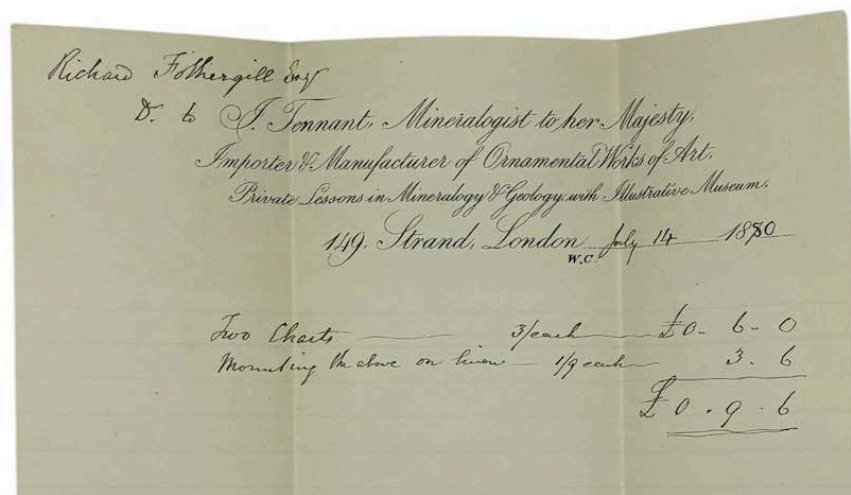 Richard Fothergill Esqr
Dr. to J. Tennant, Mineralogist to her Majesty,
Importer & Manufacturer of Ornamental Works of Art,
Private Lessons in Mineralogy & Geology, with Illustrative Museum,
149, Strand, London W.C. July 14 1880
Two Charts 3/ each £0 - 6 - 0
Mounting the above on linen 1/9 each 3 . 6
£ 0 . 9 . 6